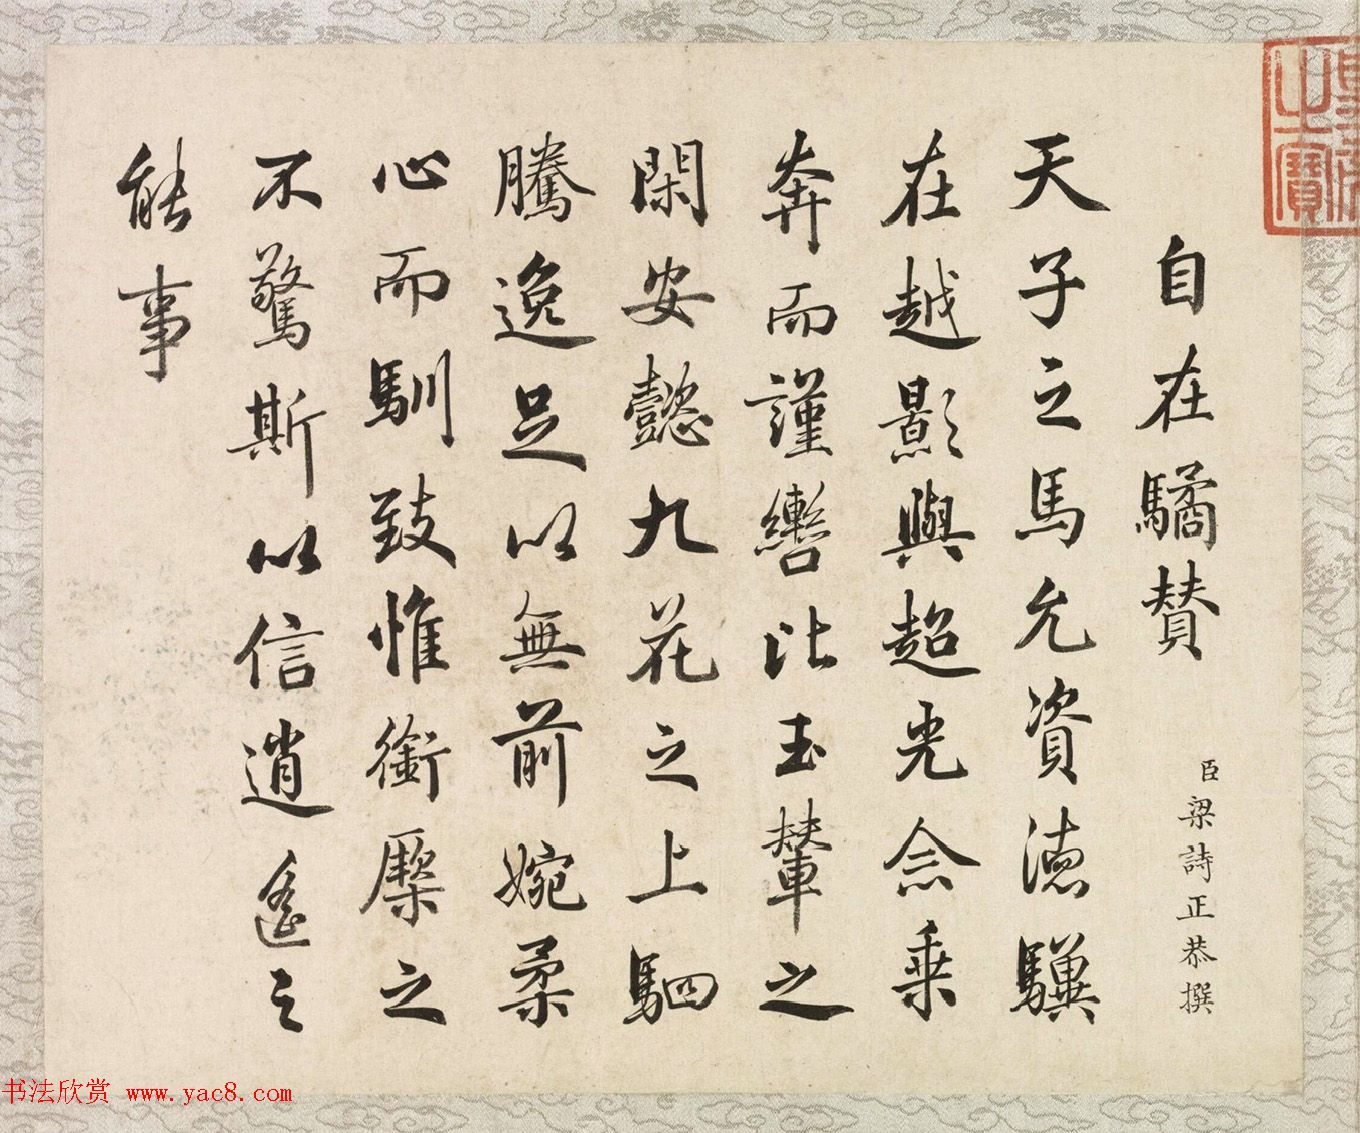 自在驈賛
臣梁詩正恭撰
天子之馬允資徳驥
在越影與超光念乗
奔而謹轡比玉輦之
閑安懿九花之上駟
騰逸足以無前婉柔
心而馴致惟銜橜之
不驚斯以信逍遙之
能事
之寶
书法欣赏 www.yac8.com